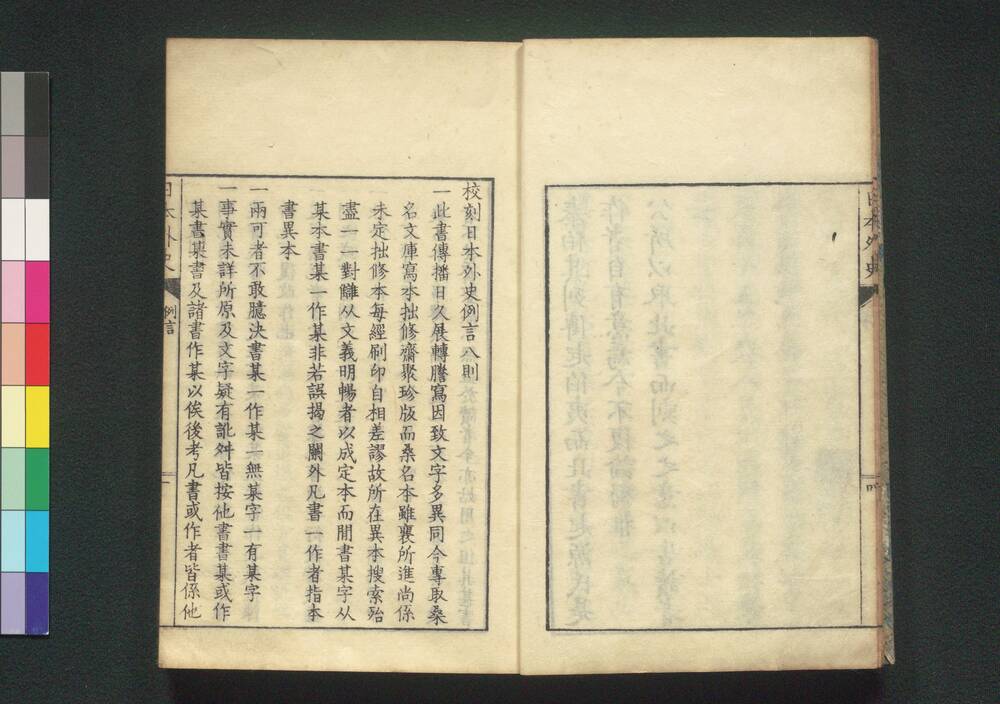 日本外史
校刻日本外史例言八則
一此書傳播日久展轉謄寫因致文字多異同今專取桑
名文庫寫本拙修齋聚珍版而桑名本雖襄所進尚係
未定拙修本每經刷印自相差謬故所在異本搜索殆
盡一一對讎从文義明暢者以成定本而閒書某字从
某本書某一作某非若誤揭之闌外凡書一作者指本
書異本
一兩可者不敢臆決書某一作某一無某字一有某字
一事實未詳所原及文字疑有訛舛皆按他書書某或作
某書某書及諸書作某以俟後考凡書或作者皆係他
日本外史
例言
一